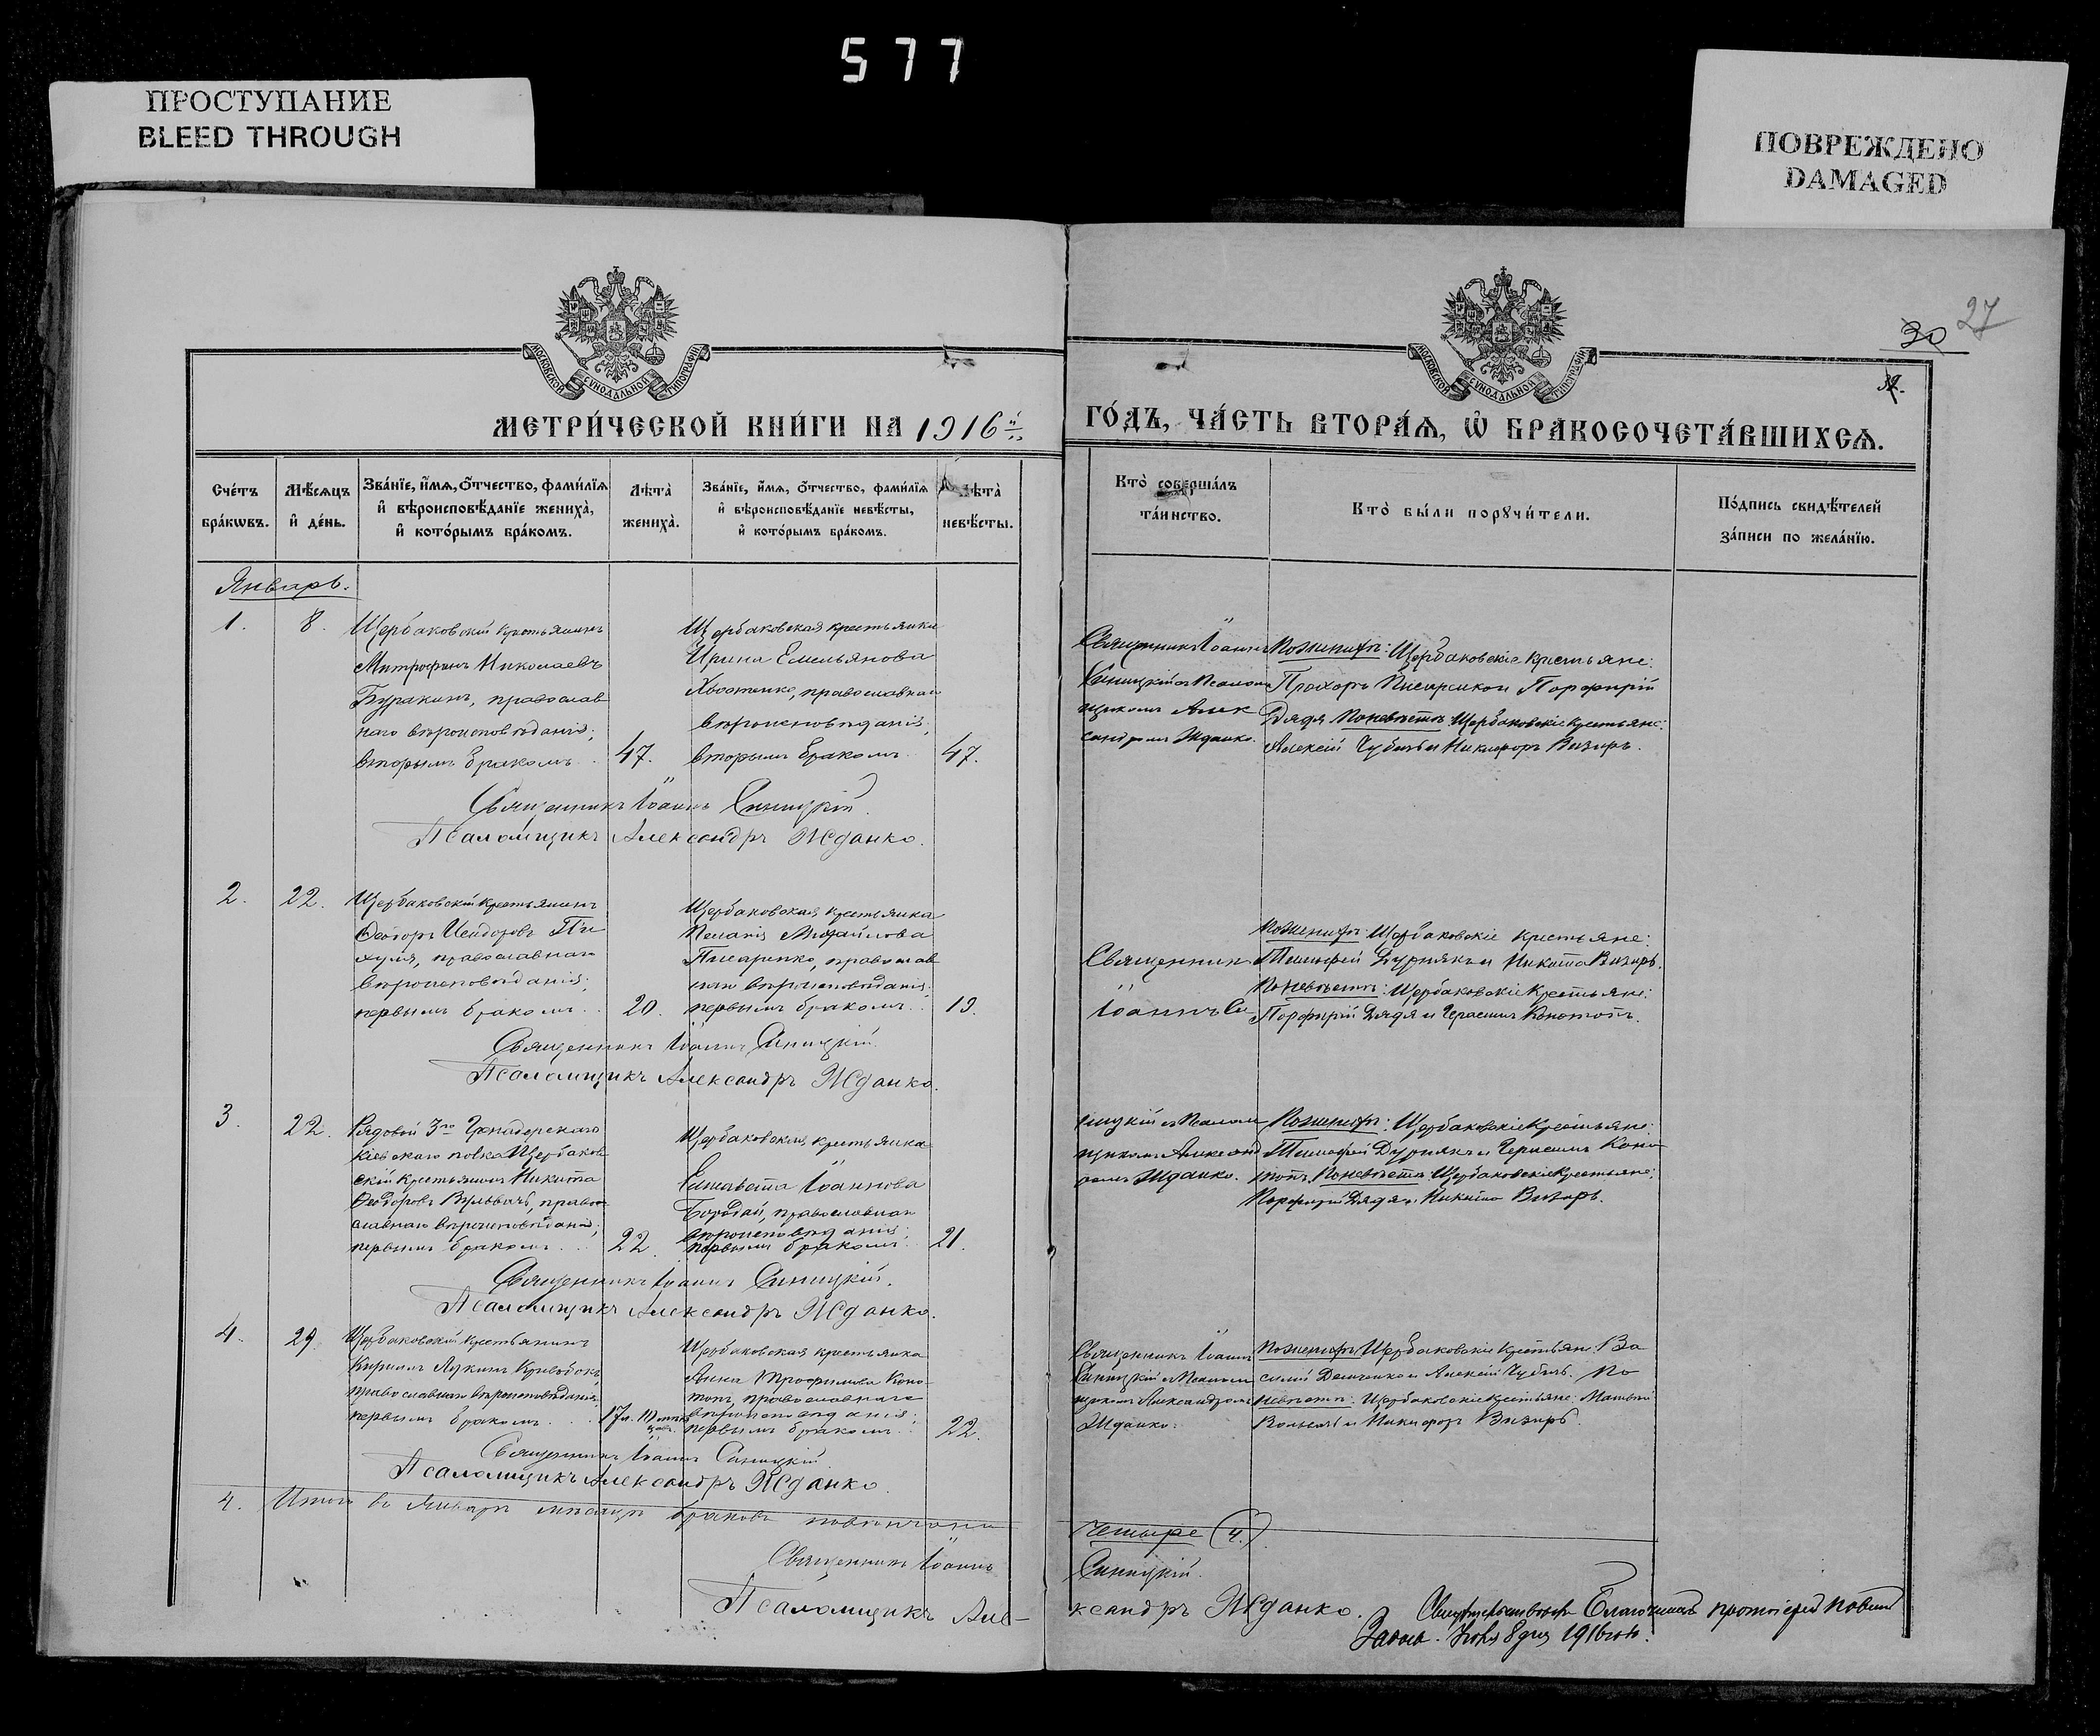 577
ПРОСТУПАНИЕ
BLEED THROUGH
ПОВРЕЖДЕНО
DAMAGED
27
30
МОСКОВСКОЙ СѴНОДАЛЬНОЙ ТИПОГРАФІИ
МОСКОВСКОЙ СѴНОДАЛЬНОЙ ТИПОГРАФІИ
МЕТРИ́ЧЕСКОЙ КНИ́ГИ НА 1916й
ГО́ДЪ, ЧА́СТЬ ВТОРА́Ѧ, Ѡ҆ БРАКОСОЧЕТА́ВШИХСѦ.
Сче́тъ бра́кѡвъ.
Мѣ́сѧцъ и҆ де́нь.
Зва́нїе, и҆́мѧ, ѻ҆́тчество, фами́лїѧ и҆ вѣроисповѣ́данїе жениха̀, и҆ кото́рымъ бра́комъ.
Лѣта̀ жениха̀.
Зва́нїе, и҆́мѧ, ѻ҆́тчество, фами́лїѧ и҆ вѣроисповѣ́данїе невѣ́сты, и҆ кото́рымъ бра́комъ.
Лѣта̀ невѣ́сты.
Кто̀ соверша́лъ та́инство.
Кто̀ бы́ли порꙋчи́тели.
По́дпись свидѣ́телей за́писи по жела́нїю.
Январь.
1.
8.
Щербаковскій крестьянинъ
Митрофанъ Николаевъ
Буракинъ, православ
наго вѣроисповѣданія;
вторымъ бракомъ.
47.
Щербаковская крестьянка
Ирина Емельянова
Хвостенко, православнаго
вѣроисповѣданія;
вторымъ бракомъ.
47.
Священникъ Іоаннъ
Синицкій съ Псалом
щикомъ Алек
сандромъ Жданко.
По женихѣ: Щербаковскіе крестьяне:
Прохоръ Писаренко и Порфирій
Дядя По невѣстѣ: Щербаковскіе крестьяне:
Алексій Чубъ и Никифоръ Визирь.
Священникъ Іоаннъ Синицкій.
Псаломщикъ Александръ Жданко.
2.
22.
Щербаковскій крестьянинъ
Ѳеодоръ Исидоровъ
православнаго
вѣроисповѣданія;
первымъ бракомъ.
20.
Щербаковская крестьянка
Пелагія Михайлова
Писаренко, православ
наго вѣроисповѣданія;
первымъ бракомъ.
19.
Священник
Іоаннъ Си
По женихѣ: Щербаковскіе крестьяне:
Тимофей Дурнякъ и Никита Визирь.
По невѣстѣ: Щербаковскіе крестьяне:
Порфирій Дядя и Герасимъ Конотопъ.
Священникъ Іоаннъ Синицкій.
Псаломщикъ Александръ Жданко.
3.
22.
Рядовой 5го Гренадерскаго
Кіевскаго полка Щербаков
скій крестьянинъ Никита
Ѳеодоровъ православнаго вѣроисповѣданія;
первымъ бракомъ.
22.
Щербаковская крестьянка
Елисавета Іоаннова
Бородай, православнаго
вѣроисповѣданія;
первымъ бракомъ.
21.
ницкій съ Псалом
щикомъ Александ
ромъ Жданко.
По женихѣ: Щербаковскіе крестьяне:
Тимофей Дурнякъ и Герасимъ Коно
топъ. По невѣстѣ: Щербаковскіе крестьяне:
Порфирій Дядя и Никита Визирь.
Священникъ Іоаннъ Синицкій.
Псаломщикъ Александръ Жданко.
4.
29.
Щербаковскій крестьянинъ
Кириллъ Лукинъ Кривобокъ
православнаго вѣроисповѣданія;
первымъ бракомъ.
17 л.
Щербаковская крестьянка
Анна Трофимова Коно-
топъ, православнаго
вѣроисповѣданія;
первымъ бракомъ.
22.
Священникъ Іоаннъ
Синицкій съ Псалом
щикомъ Александромъ
Жданко.
По женихѣ: Щербаковскіе крестьяне Ва
силій Демченко и Алексій Чубъ. По
невѣстѣ: Щербаковскіе крестьяне: Матвѣй
и Никифоръ Визирь.
Священникъ Іоаннъ Синицкій
Псаломщикъ Александръ Жданко.
4. Итого въ Январѣ мѣсяцѣ браковъ повѣнчано
четыре (4.)
Священникъ Іоаннъ
Синицкій.
Псаломщикъ Але-
ксандръ Жданко.
Свидѣтельствовалъ Благочинный протоіерей
8 дня 1916 года.